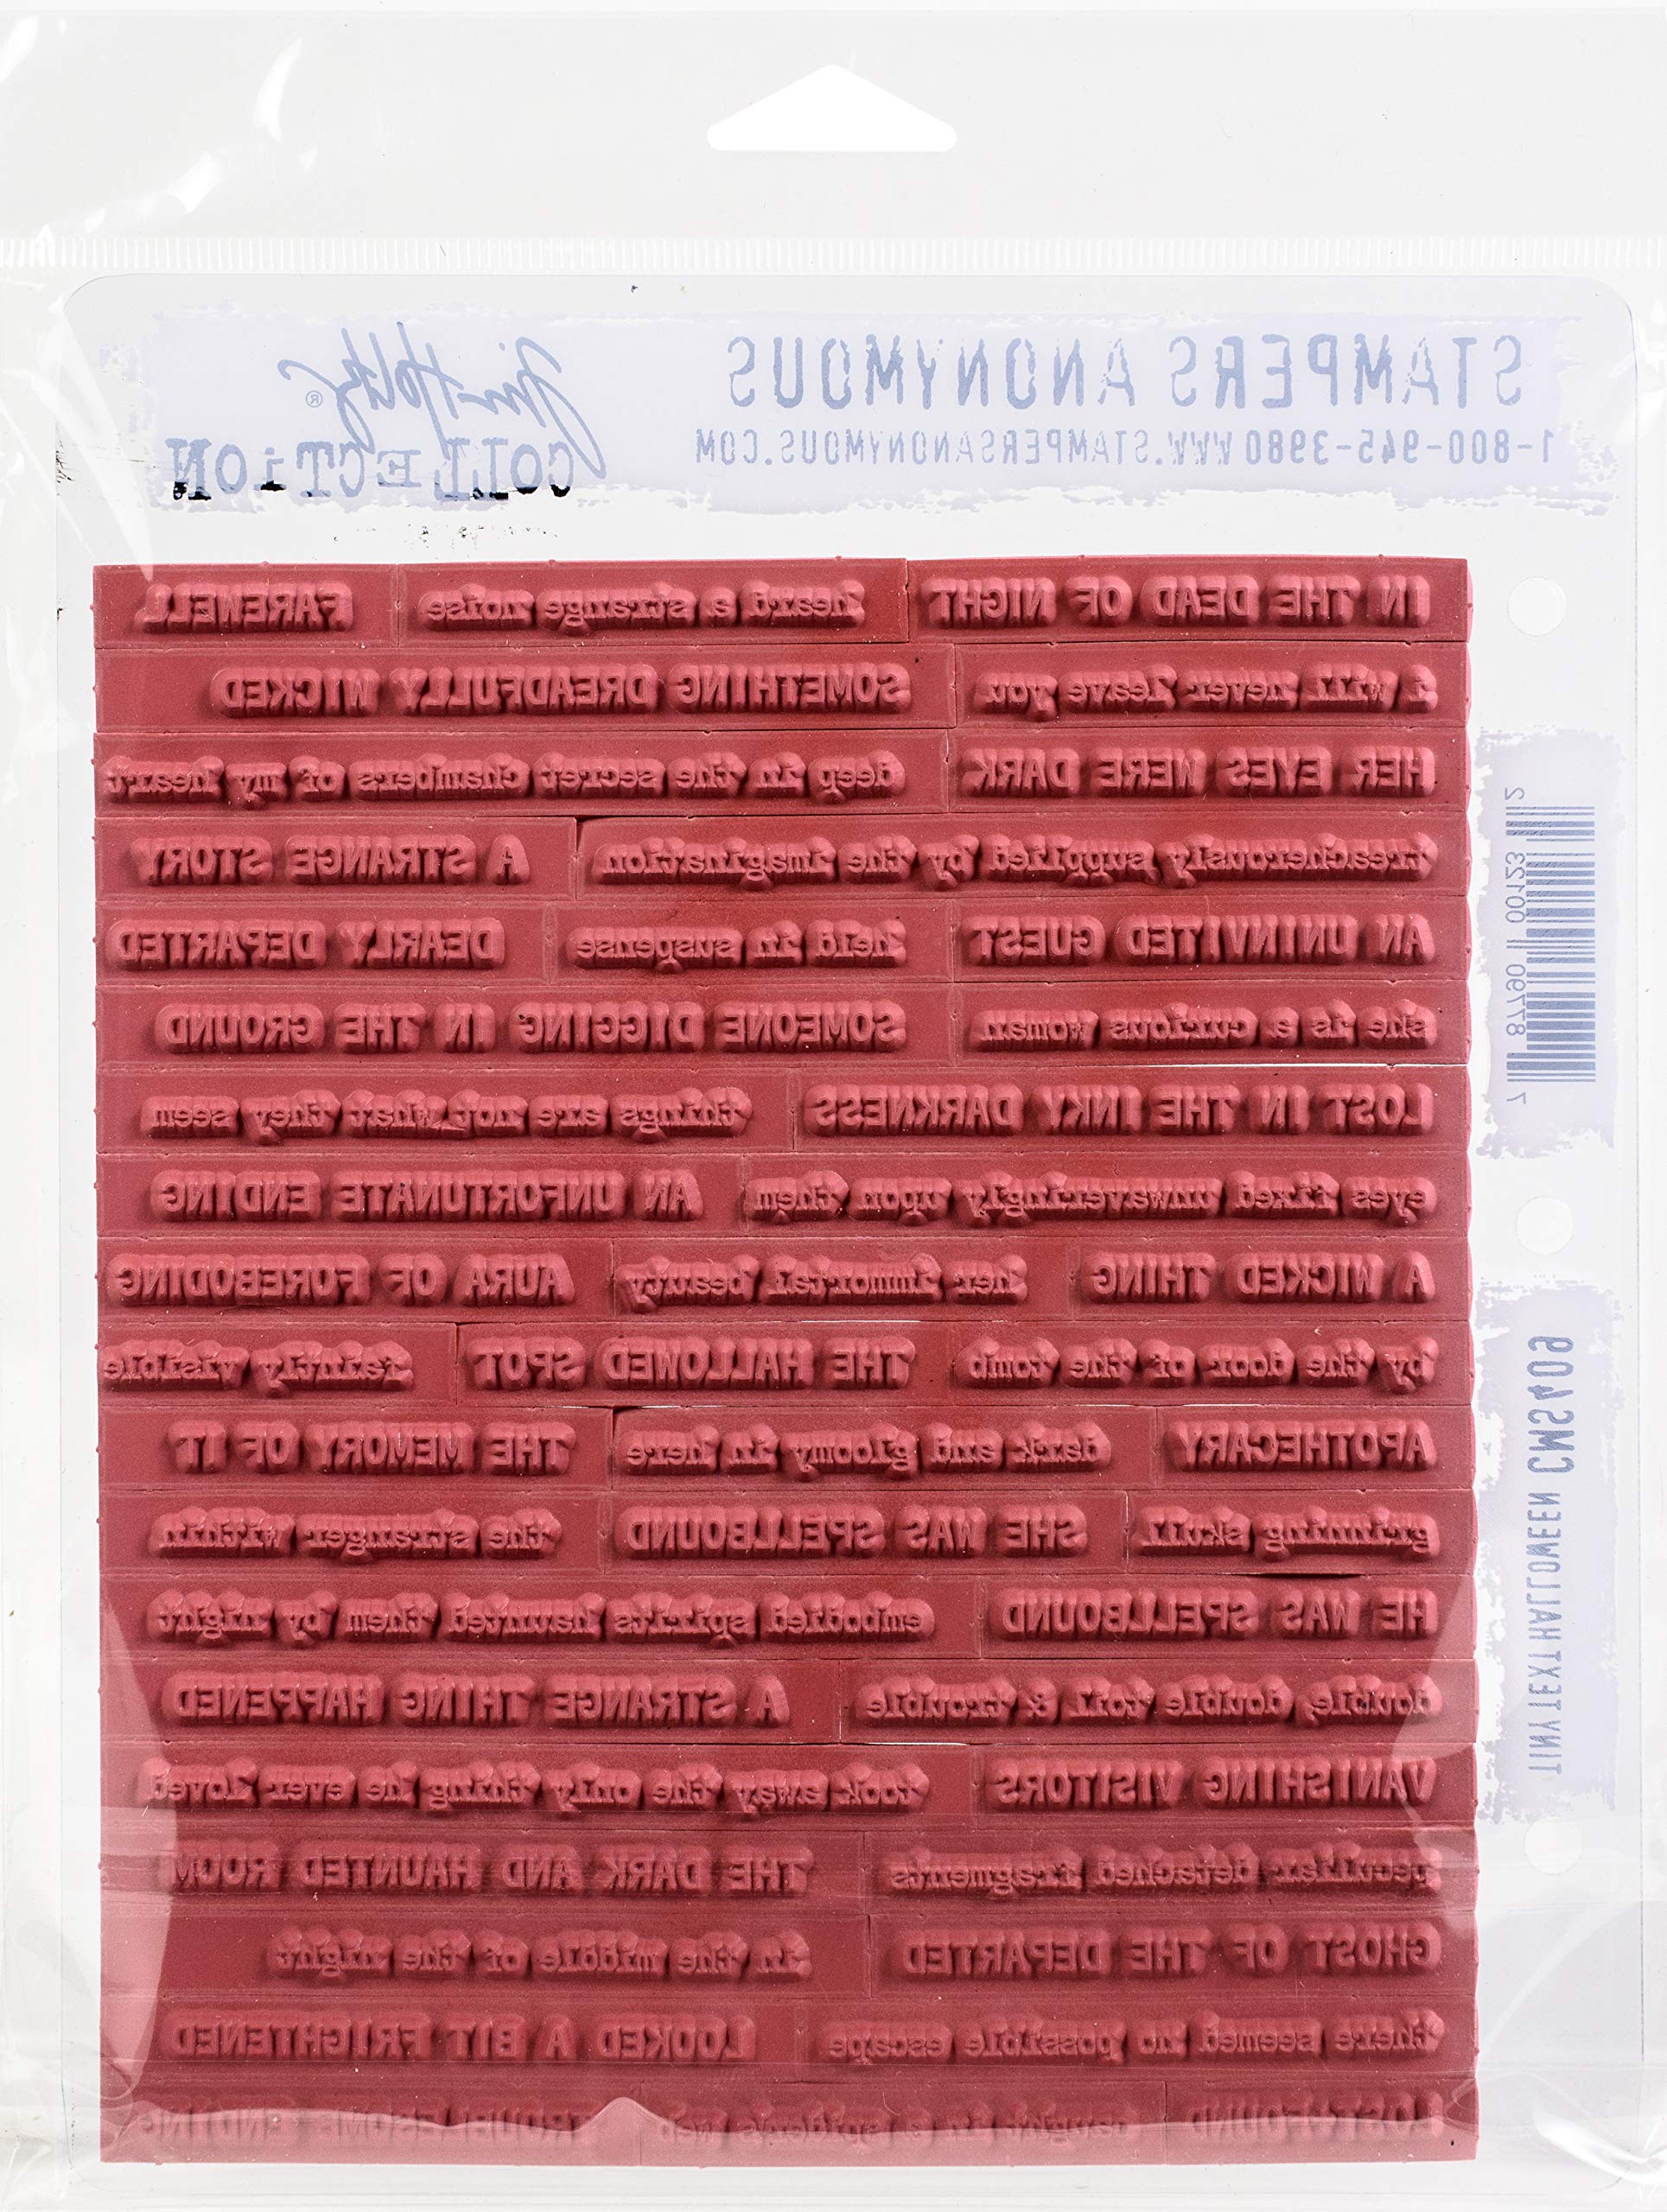 STAMPERS ANONYMOUS Tim Holtz®
1-800-945-3980 WWW.STAMPERSANONYMOUS.COM COLLECTION
IN THE DEAD OF NIGHT heard a strange noise FAREWELL
i will never leave you SOMETHING DREADFULLY WICKED
HER EYES WERE DARK deep in the secret chambers of my heart
treacherously supplied by the imagination A STRANGE STORY
AN UNINVITED GUEST held in suspense DEARLY DEPARTED
she is a curious woman SOMEONE DIGGING IN THE GROUND
LOST IN THE INKY DARKNESS things are not what they seem
eyes fixed unwaveringly upon them AN UNFORTUNATE ENDING
A WICKED THING her immortal beauty AURA OF FOREBODING
by the door of the tomb THE HALLOWED SPOT faintly visible
APOTHECARY dark and gloomy in here THE MEMORY OF IT
grinning skull SHE WAS SPELLBOUND the stranger within
HE WAS SPELLBOUND embodied spirits haunted them by night
double, double toil & trouble A STRANGE THING HAPPENED
VANISHING VISITORS took away the only thing he ever loved
peculiar detached fragments THE DARK AND HAUNTED ROOM
GHOST OF THE DEPARTED in the middle of the night
there seemed no possible escape LOOKED A BIT FRIGHTENED
LOST & FOUND caught in a spider's web TROUBLESOME ENDING
7 87790 00123 2
TINY TEXT HALLOWEEN CMS409